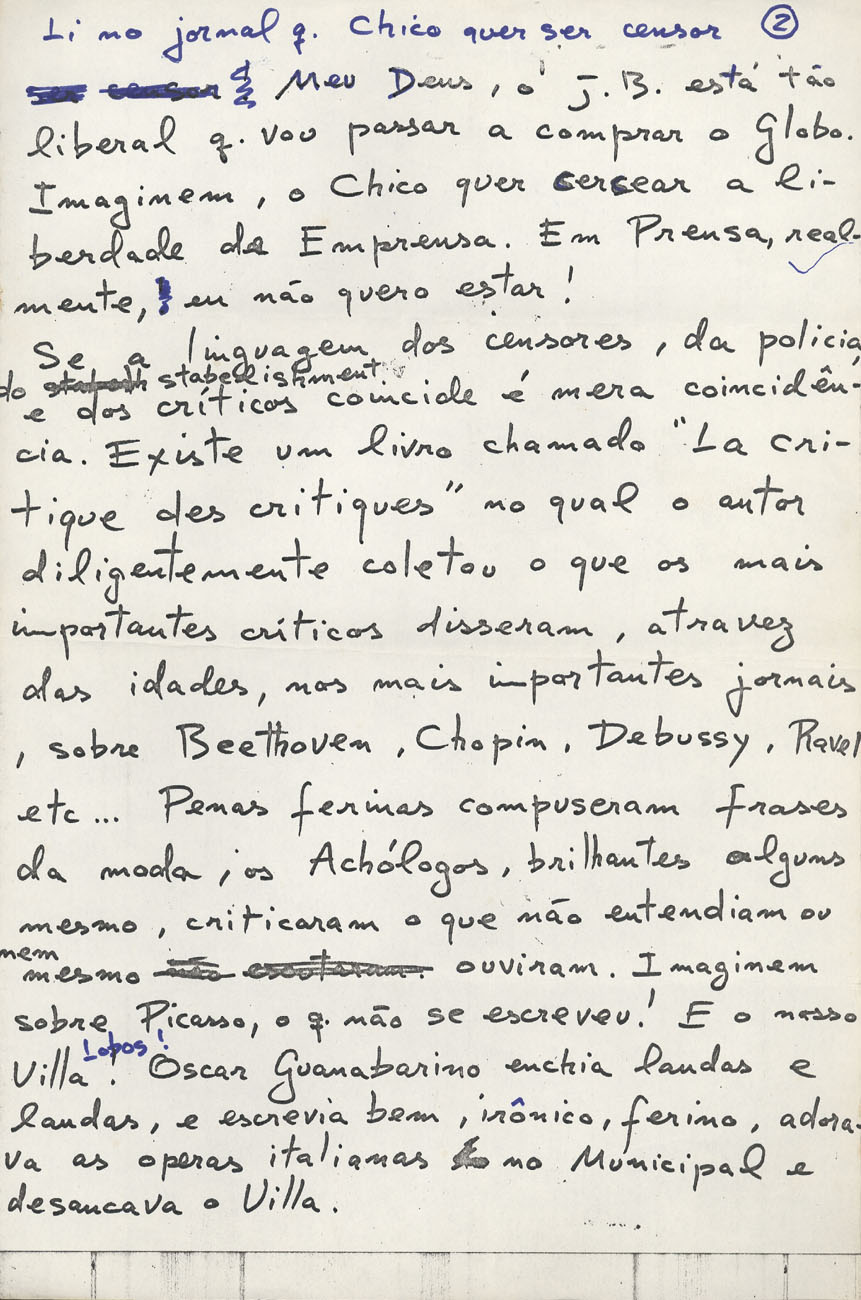 Li no jornal q. Chico quer ser censor ②
ser censor Meu Deus, o J.B. está tão
liberal q. vou passar a comprar o Globo.
Imaginem, o Chico quer cersear a li-
berdade de Emprensa. Em Prensa, real-
mente, eu não quero estar!
Se a linguagem dos censores, da policia,
do stabellishment
e dos críticos coincide é mera coincidên-
cia. Existe um livro chamado "La cri-
tique des critiques" no qual o autor
diligentemente coletou o que os mais
importantes críticos disseram, atravez
das idades, nos mais importantes jornais
, sobre Beethoven, Chopin, Debussy, Ravel
etc... Penas ferinas compuseram frases
da moda, os Achólogos, brilhantes alguns
mesmo, criticaram o que não entendiam ou
nem
mesmo não escutaram. ouviram. Imaginem
sobre Picasso, o q não se escreveu! E o nosso
Lobos!
Villa. Oscar Guanabarino enchia laudas e
laudas, e escrevia bem, irônico, ferino, adora-
va as operas italianas no Municipal e
desancava o Villa.